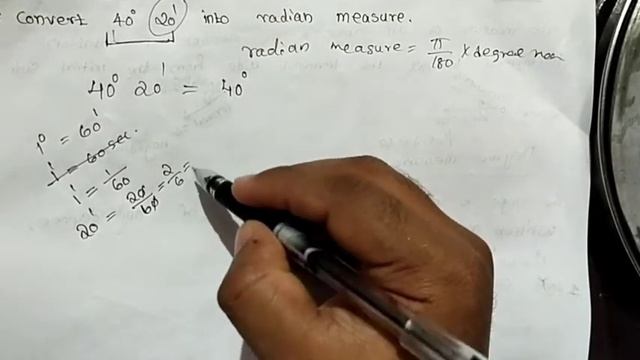 Convert 40° 20' into radian measure.
radian measure = π/180 × degree
40° 20' = 40°
1° = 60'
1' = 60 sec.
1' = 1/60
20' = 20/60 = 2/6 =